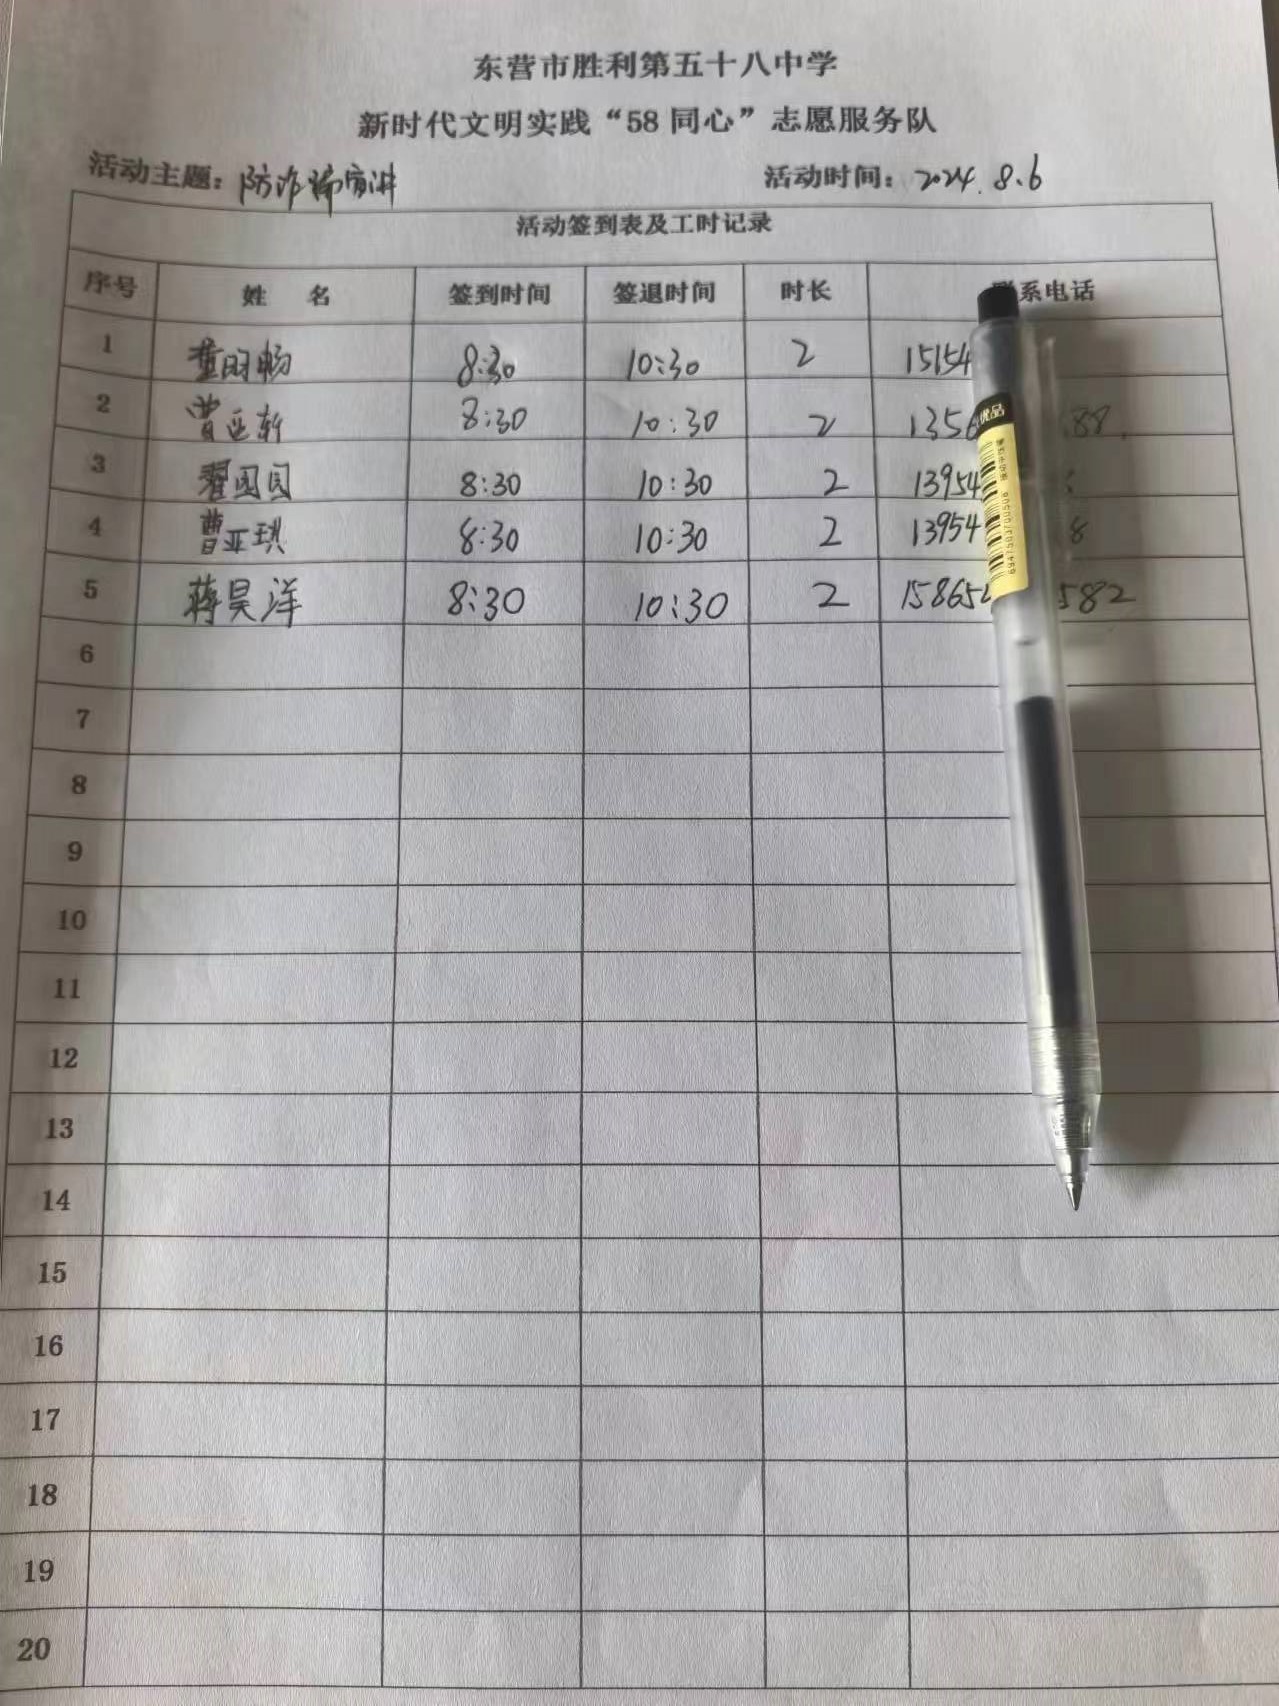 东营市胜利第五十八中学
新时代文明实践“58同心”志愿服务队
活动主题：防诈骗宣讲 活动时间：2024.8.6
活动签到表及工时记录
序号 姓 名 签到时间 签退时间 时长 系电话
1 董昀畅 8:30 10:30 2 15154
2 曹延新 8:30 10:30 2 1356 88
3 翟园园 8:30 10:30 2 13954
4 曹亚琪 8:30 10:30 2 13954 8
5 蒋昊洋 8:30 10:30 2 15865 582
6
7
8
9
10
11
12
13
14
15
16
17
18
19
20
优品